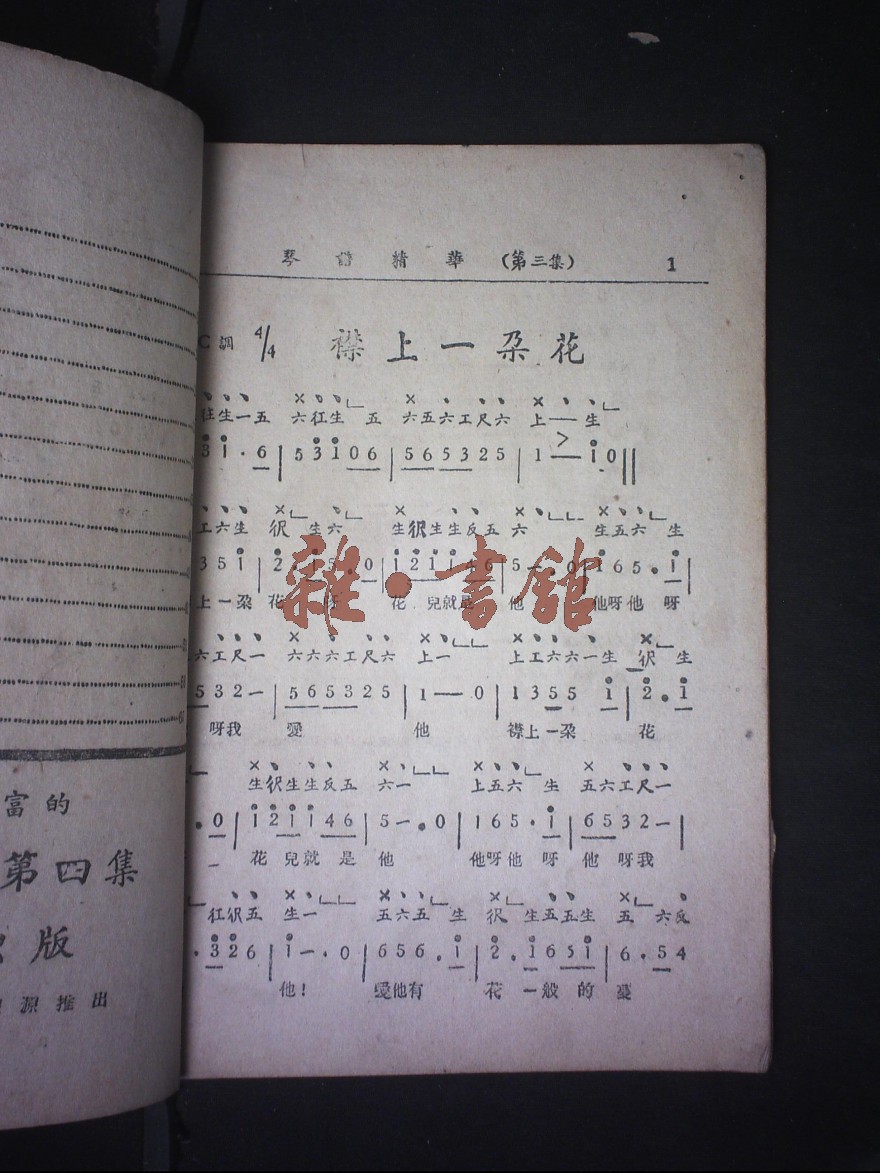 琴譜精華 (第三集) 1
C調 4/4 襟上一朵花
生一五 六仩生 五 六五六工尺六 上——生
3 1 · 6 | 5 3 1 0 6 | 5 6 5 3 2 5 | 1 — 1 0 ||
工六生 伬 生六 生伬生生反五 六 生五六 生
3 5 1 | 2 · 1 5 · 0 | 1 2 1 1 4 6 | 5 — · 0 | 1 6 5 · 1
上一朵 花 呀 花 兒就是 他 他呀他 呀
六工尺一 六六六工尺六 上一 上工六六一生 伬 生
5 3 2 — | 5 6 5 3 2 5 | 1 — 0 | 1 3 5 5 1 | 2 · 1
呀我 愛 他 襟上一朵 花
生伬生生反五 六一 上五六 生 五六工尺一
· 0 | 1 2 1 1 4 6 | 5 — · 0 | 1 6 5 · 1 | 6 5 3 2 —
花 兒就 是 他 他呀他 呀 他 呀我
仜伬五 生一 五六五 生 伬 生五五生 五 六反
· 3 2 6 | 1 — · 0 | 6 5 6 · 1 | 2 · 1 6 5 1 | 6 · 5 4
他! 愛他有 花 一般 的
富的
第四集
版
源推出
雜·書館